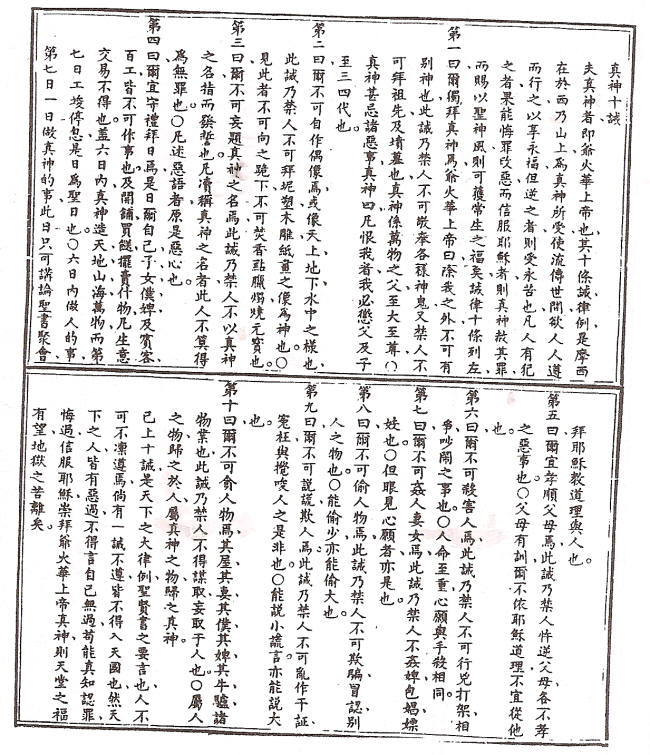 真神十誡
夫真神者即爺火華上帝也其十條誡律例是摩西
在於西乃山上為真神所受使流傳世間欲人人遵
而行之以享永福但逆之者則受永苦也凡人有犯
之者果能悔罪改惡而信服耶穌者則真神赦其罪
而賜以聖神風則可獲常生之福矣誡律十條列左
第一曰爾獨拜真神爲爺火華上帝曰除我之外不可有
別神也此誡乃禁人不可敬奉各樣神鬼又禁人不
可拜祖先及墳墓也真神係萬物之父至大至尊〇
真神甚忌諸惡事真神曰凡恨我者我必懲父及子
至三四代也
第二曰爾不可自作偶像爲或像天上地下水中之樣也
此誡乃禁人不可拜坭塑木雕紙畫之像為神也〇
見此者不可向之跪下不可焚香點臘燭燒元寶也
第三曰爾不可妄題真神之名爲此誡乃禁人不以真神
之名指而發誓也凡瀆稱真神之名者此人不算得
為無罪也〇凡述惡語者原是惡心也
第四曰爾宜守禮拜日爲是日爾自己子女僕婢及賓客
百工皆不可作事也及開舖買賣擺賣什物凡生意
交易不得也蓋六日內真神造天地山海萬物而第
七日工竣停息是日為聖日也〇六日內做人的事
第七日一日做真神的事此日只可講論聖書聚會
拜耶穌教道理與人也
第五曰爾宜孝順父母爲此誡乃禁人忤逆父母各不孝
之惡事也〇父母有訓爾不依耶穌道理不宜從他
也
第六曰爾不可殺害人爲此誡乃禁人不可行兇打架相
爭吵鬧之事也〇人命至重心願與手殺相同
第七曰爾不可姦人妻女爲此誡乃禁人不姦婢包娼嫖
妓也〇但眼見心願者亦是也
第八曰爾不可偷人物爲此誡乃禁人不可欺騙冒認別
人之物也〇能偷少亦能偷大也
第九曰爾不可說謊欺人爲此誡乃禁人不可亂作干証
寃枉與攪唆人之是非也〇能說小謊言亦能說大
也
第十曰爾不可貪人物爲其屋其妻其僕其婢其牛驢諸
物業也此誡乃禁人不得謀取妄取于人也〇屬人
之物歸之於人屬真神之物歸之真神
已上十誡是天下之大律例聖賢書之要言也人不
可不凜遵爲倘有一誡不遵皆不得入天國也然天
下之人皆有惡過不得言自己無過苟能真知認罪
悔過信服耶穌崇拜爺火華上帝真神則天堂之福
有望地獄之苦離矣